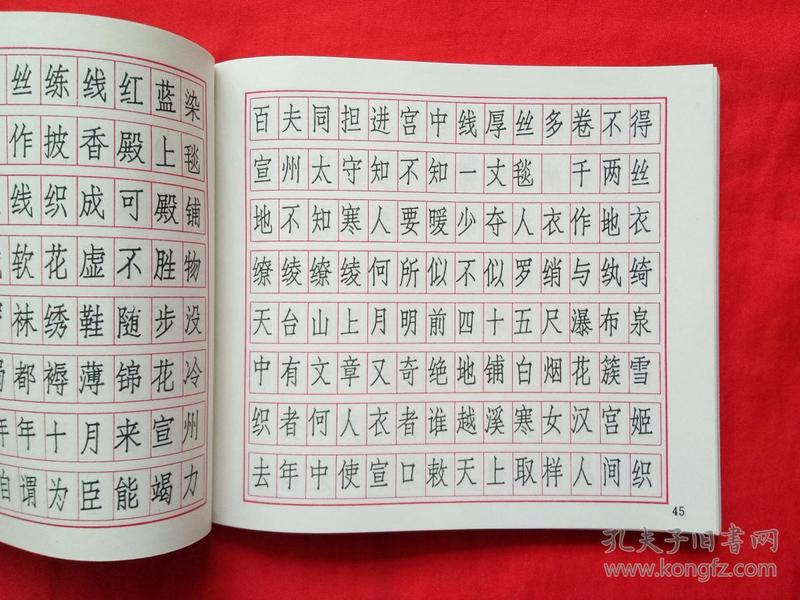 丝练线红蓝染
作披香殿上毯
线织成可殿铺
软花虚不胜物
袜绣鞋随步没
都褥薄锦花冷
年十月来宣州
自谓为臣能竭力
百夫同担进宫中线厚丝多卷不得
宣州太守知不知一丈毯 千两丝
地不知寒人要暖少夺人衣作地衣
缭绫缭绫何所似不似罗绡与纨绮
天台山上月明前四十五尺瀑布泉
中有文章又奇绝地铺白烟花簇雪
织者何人衣者谁越溪寒女汉宫姬
去年中使宣口敕天上取样人间织
45
孔夫子旧书网
www.kongfz.com